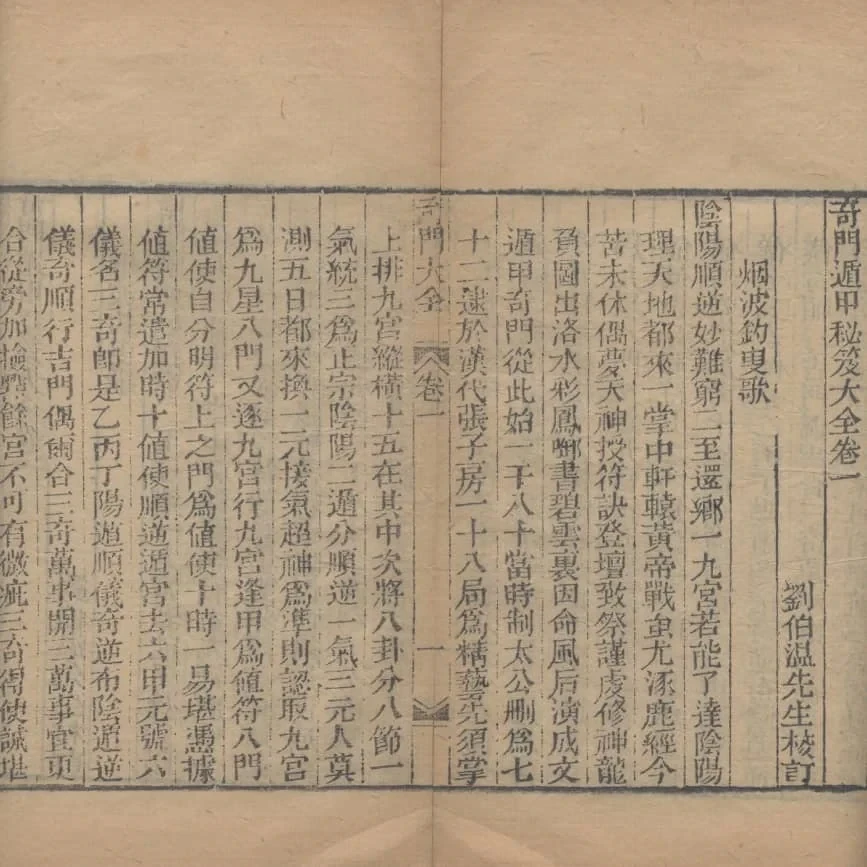 奇門遁甲秘笈大全卷一
劉伯温先生校訂
烟波釣叟歌
陰陽順逆妙難窮二至還鄉一九宮若能了達陰陽
理天地都來一掌中軒轅黃帝戰蚩尤涿鹿經今
苦未休偶夢天神授符訣登壇致祭謹虔修神龍
負圖出洛水彩鳳啣書碧雲裏因命風后演成文
遁甲奇門從此始一千八十當時制太公刪爲七
十二逮於漢代張子房一十八局爲精藝先須掌
奇門大全 卷一 一
上排九宮縱橫十五在其中次將八卦分八節一
氣統三爲正宗陰陽二遁分順逆一氣三元人莫
測五日都來換一元接氣超神爲準則認取九宮
爲九星八門又逐九宮行九宮逢甲爲值符八門
值使自分明符上之門爲值使十時一易堪憑據
值符常遣加時十值使順逆遁宮去六甲元號六
儀名三奇即是乙丙丁陽遁順儀奇逆布陰遁逆
儀奇順行吉門偶爾合三奇萬事開三萬事宜更
合從旁加檢點餘宮不可有微疵三奇得使誠堪